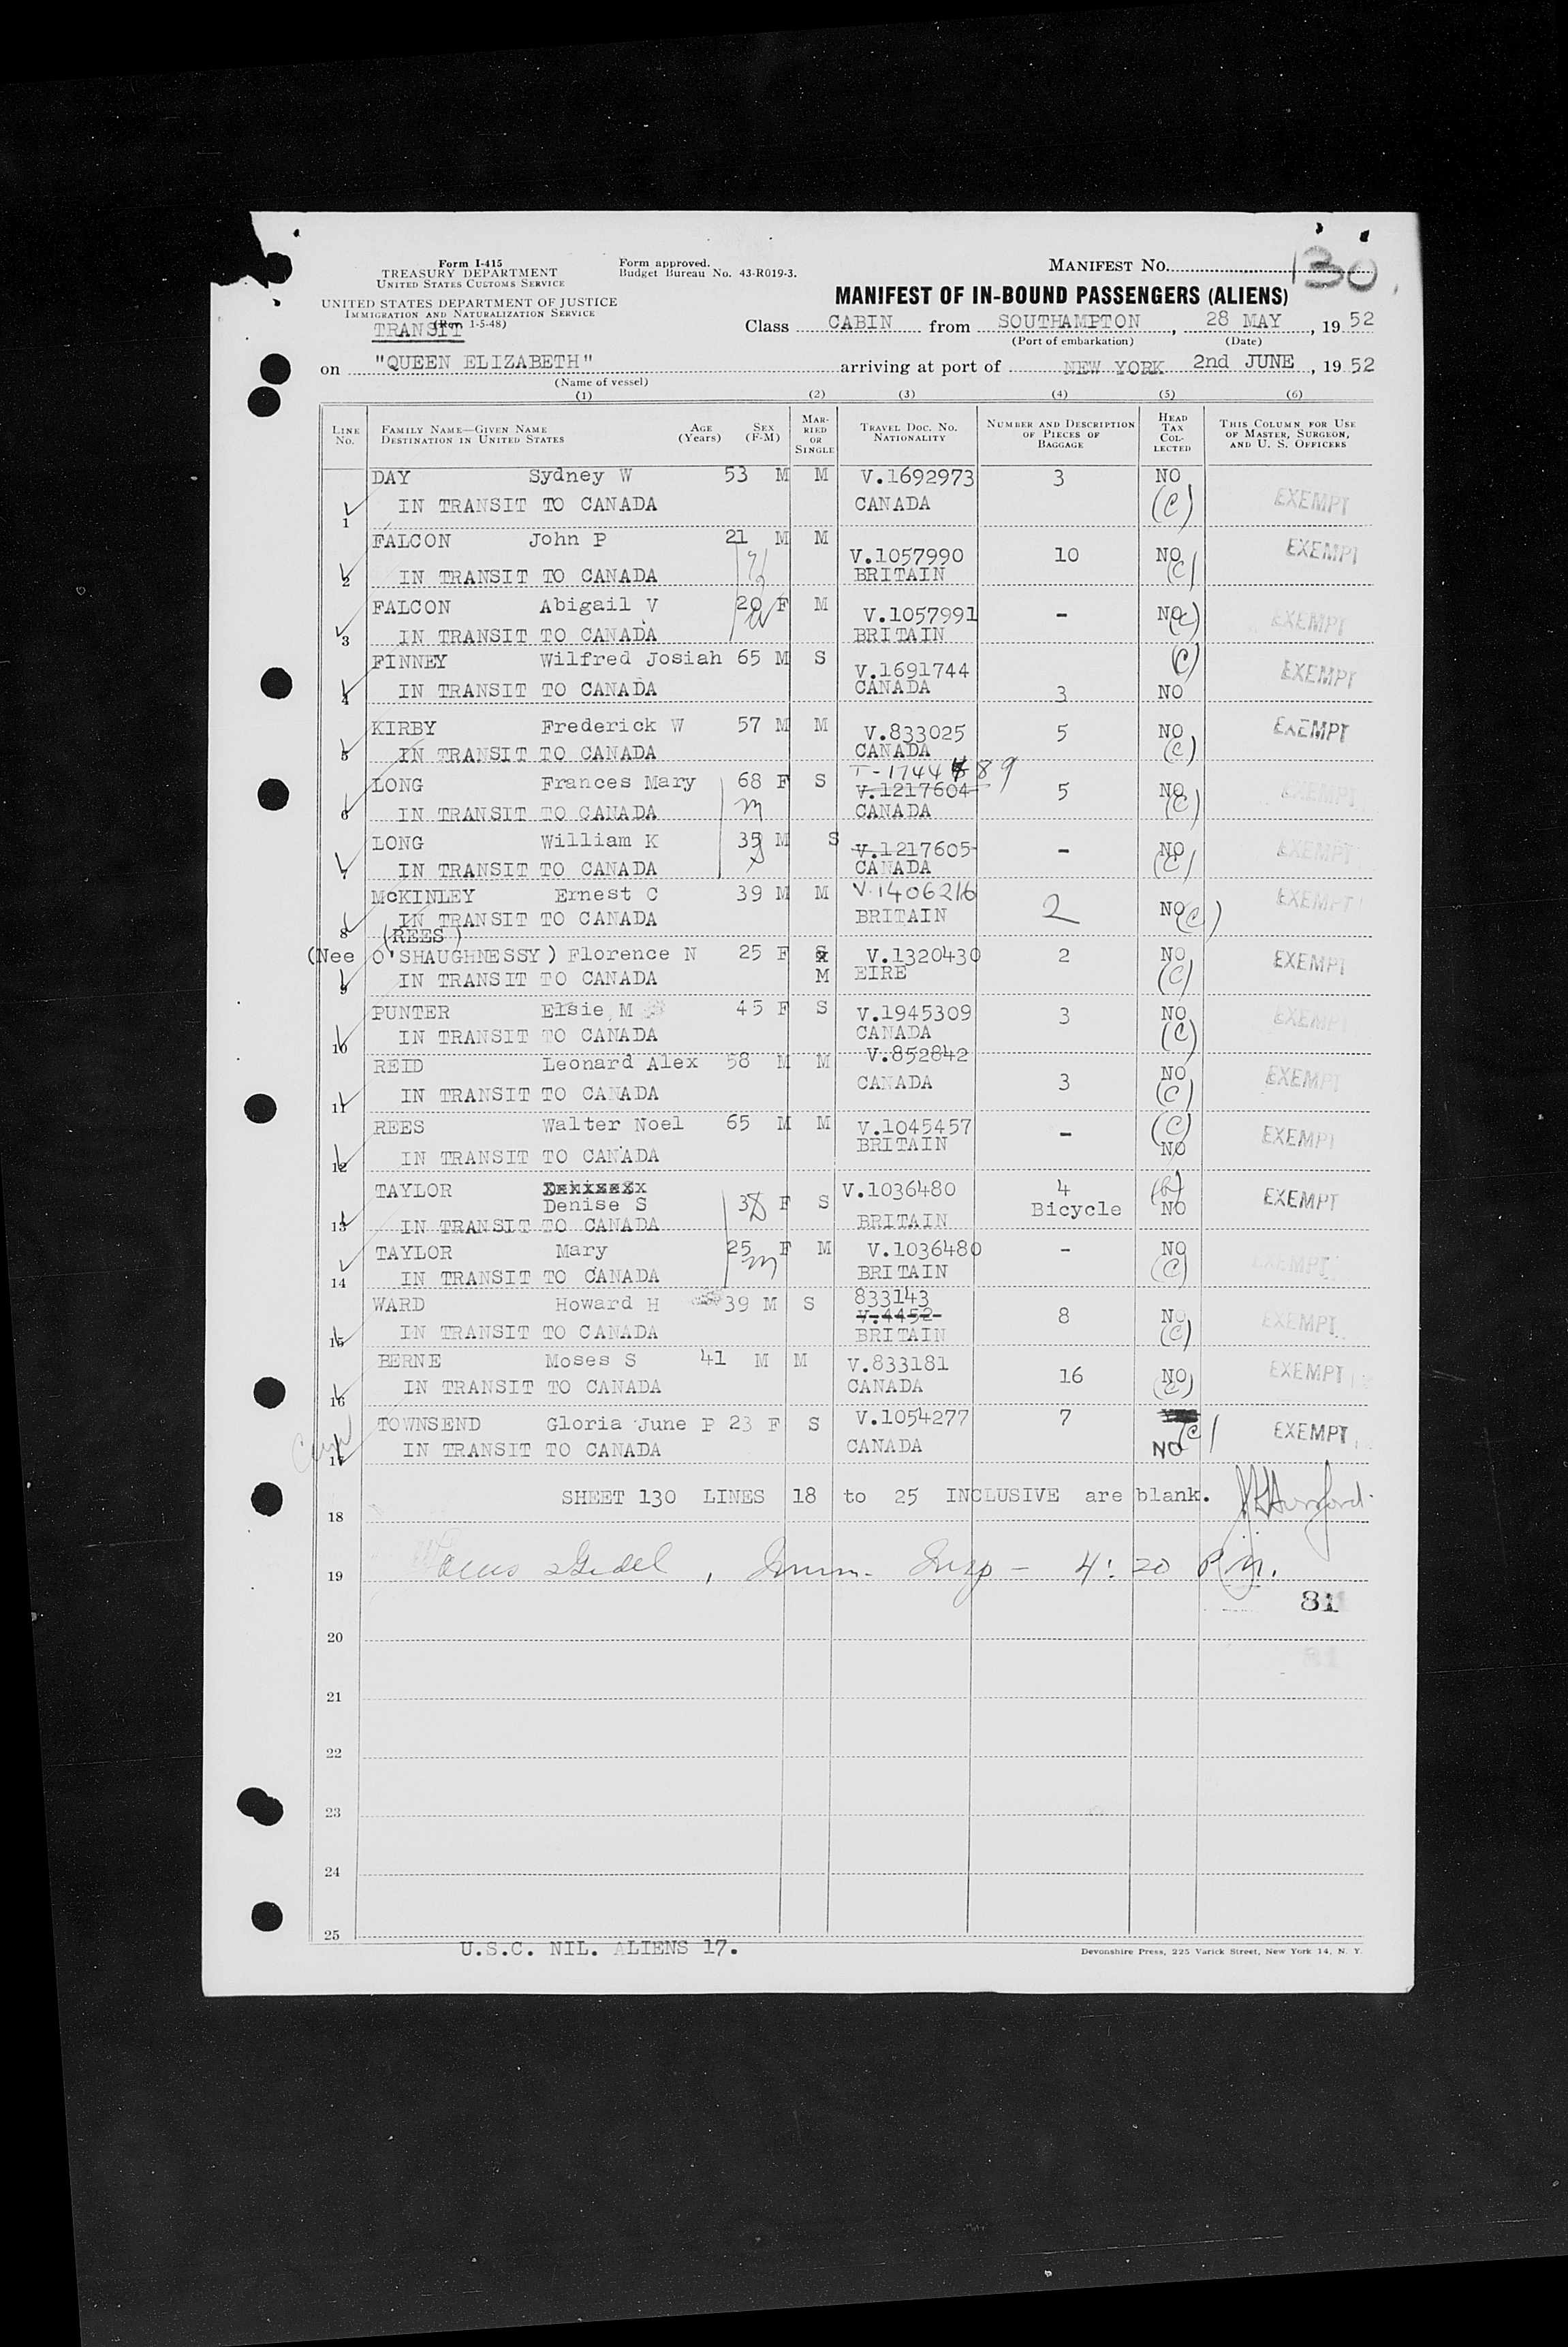 Form I-415
TREASURY DEPARTMENT
UNITED STATES CUSTOMS SERVICE
UNITED STATES DEPARTMENT OF JUSTICE
IMMIGRATION AND NATURALIZATION SERVICE
(Rev. 1-5-48)
TRANSIT
Form approved.
Budget Bureau No. 43-R019-3.
MANIFEST NO. 130
MANIFEST OF IN-BOUND PASSENGERS (ALIENS)
Class CABIN from SOUTHAMPTON, 28 MAY, 1952
(Port of embarkation) (Date)
on "QUEEN ELIZABETH" arriving at port of NEW YORK 2nd JUNE, 1952
(Name of vessel)
(1) (2) (3) (4) (5) (6)
LINE NO. FAMILY NAME—GIVEN NAME DESTINATION IN UNITED STATES AGE (Years) SEX (F-M) MARRIED OR SINGLE TRAVEL DOC. NO. NATIONALITY NUMBER AND DESCRIPTION OF PIECES OF BAGGAGE HEAD TAX COLLECTED THIS COLUMN FOR USE OF MASTER, SURGEON, AND U. S. OFFICERS
DAY Sydney W 53 M M V.1692973 3 NO
1 IN TRANSIT TO CANADA CANADA (C) EXEMPT
FALCON John P 21 M M V.1057990 10 NO EXEMPT
2 IN TRANSIT TO CANADA BRITAIN (C)
FALCON Abigail V 20 F M V.1057991 - NO (C) EXEMPT
3 IN TRANSIT TO CANADA BRITAIN
FINNEY Wilfred Josiah 65 M S V.1691744 (C) EXEMPT
4 IN TRANSIT TO CANADA CANADA 3 NO
KIRBY Frederick W 57 M M V.833025 5 NO EXEMPT
5 IN TRANSIT TO CANADA CANADA (C)
T-1744889
LONG Frances Mary 68 F S V.1217604 5 NO EXEMPT
6 IN TRANSIT TO CANADA CANADA (C)
LONG William K 35 M S V.1217605 - NO EXEMPT
7 IN TRANSIT TO CANADA CANADA (C)
McKINLEY Ernest C 39 M M V.1406216 2 NO (C) EXEMPT
8 IN TRANSIT TO CANADA BRITAIN
(REES )
(Nee O'SHAUGHNESSY) Florence N 25 F S V.1320430 2 NO EXEMPT
9 IN TRANSIT TO CANADA M EIRE (C)
PUNTER Elsie M 45 F S V.1945309 3 NO EXEMPT
10 IN TRANSIT TO CANADA CANADA (C)
REID Leonard Alex 58 M M V.852842 NO EXEMPT
11 IN TRANSIT TO CANADA CANADA 3 (C)
REES Walter Noel 65 M M V.1045457 - (C) EXEMPT
12 IN TRANSIT TO CANADA BRITAIN NO
TAYLOR Denise S 3 F S V.1036480 4 Bicycle NO EXEMPT
13 IN TRANSIT TO CANADA BRITAIN
TAYLOR Mary 25 F M V.1036480 - NO EXEMPT
14 IN TRANSIT TO CANADA BRITAIN (C)
WARD Howard H 39 M S 833143 V.4452 8 NO EXEMPT
15 IN TRANSIT TO CANADA BRITAIN (C)
BERNE Moses S 41 M M V.833181 16 NO EXEMPT
16 IN TRANSIT TO CANADA CANADA (C)
TOWNSEND Gloria June P 23 F S V.1054277 7 (C) EXEMPT
17 IN TRANSIT TO CANADA CANADA NO
SHEET 130 LINES 18 to 25 INCLUSIVE are blank.
18
19 Imm. Insp - 4:20 P.M.
81
20
21
22
23
24
25
U.S.C. NIL. ALIENS 17.
Devonshire Press, 225 Varick Street, New York 14, N. Y.